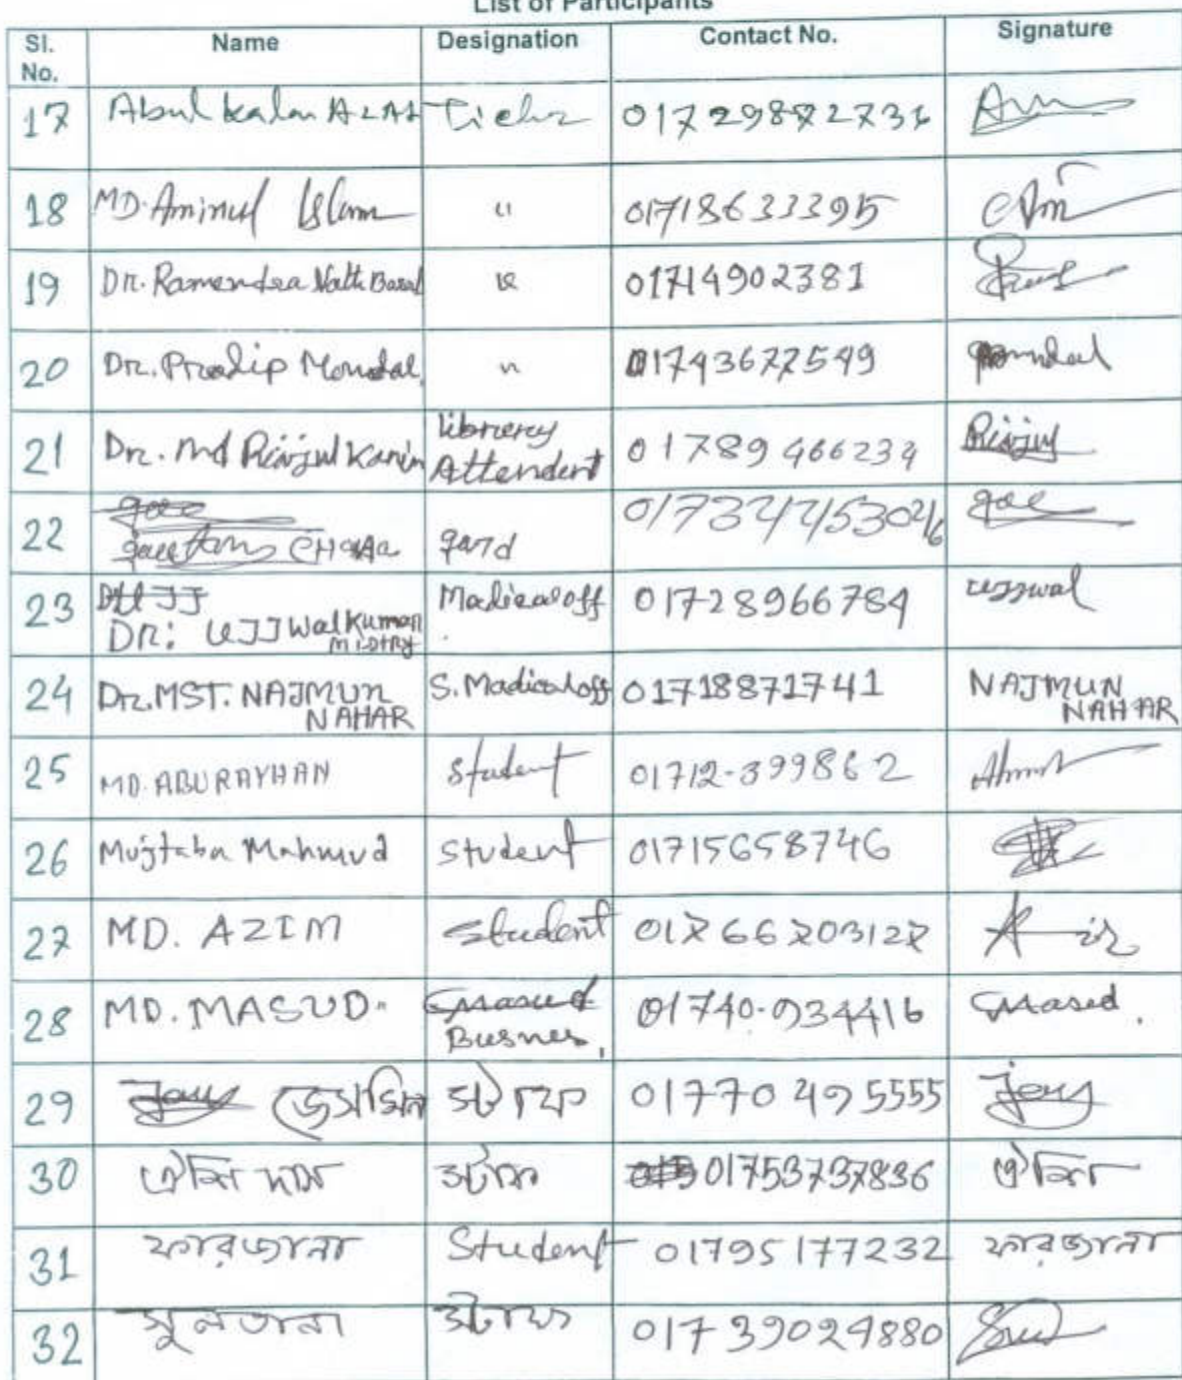 List of Participants
Sl. No. Name Designation Contact No. Signature
17 Abul Kalam AZAD 01729872731
18 MD. Aminul Islam " 01718633395
19 Dr. Ramendra Nath Basal " 01714902381
20 Dr. Pradip Mondal " 01743677549
21 Dr. Md Riajul Karim librery Attendent 01789466234 Riajul
22 gard
23 Dr: UJJWal Kumar MISTRY Madical off 01728966784 uzzwal
24 Dr. MST. NAJMUN NAHAR S. Madical off 01718871741 NAJMUN NAHAR
25 MD. ABU RAYHAN Student 01712-399862
26 Mujtaba Mahmud Student 01715658746
27 MD. AZIM Student 01766703127
28 MD. MASUD. Busnes, 01740-934416 Masud.
29 জেসমিন স্টাফ 01770495555 Jesy
30 দাস স্টাফ 01753737836
31 ফারজানা Student 01795177232 ফারজানা
32 সুলতানা স্টাফ 01739024880